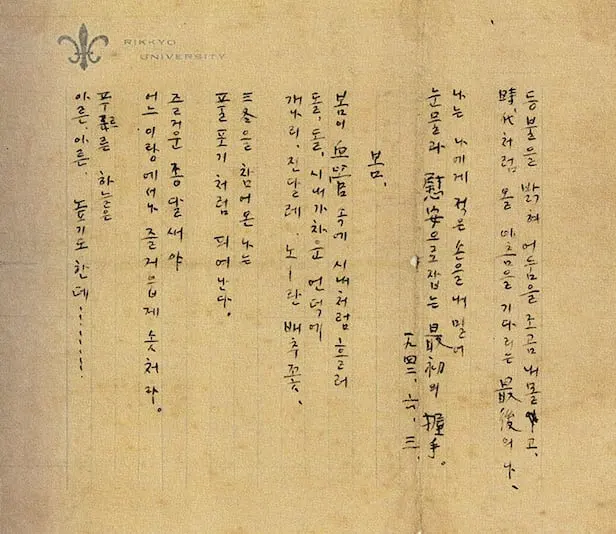 RIKKYO
UNIVERSITY
등불을 밝혀 어둠을 조곰 내몰고,
時代처럼 올 아츰을 기다리는 最後의 나,
나는 나에게 적은 손을 내밀어
눈물과 慰安으로 잡는 最初의 握手。
一九四二、六、三、
봄、
봄이 血管 속에 시내처럼 흘러
돌, 돌, 시내 가차운 언덕에
개나리, 진달레, 노―란 배추꽃、
三冬을 참어온 나는
풀포기 처럼 피여난다。
즐거운 종달새야
어느 이랑에서나 즐거웁게 솟처라。
푸르른 하늘은
아른、아른、높기도 한데………